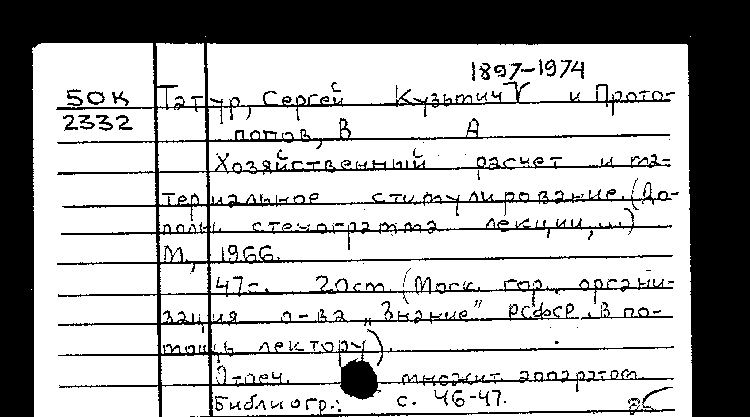 1897-1974
50К Татур, Сергей Кузьмич и Прото-
2332
попов, В А
Хозяйственный расчет и ма-
териальное стимулирование. (До-
полн. стенограмма лекции,...)
М., 1966.
47-. 20cm (Моск. гор. органи-
зация о-ва „Знание" РСФСР. В по-
мощь лектору).
Отпеч. множит аппаратом.
Библиогр.: с. 46-47.